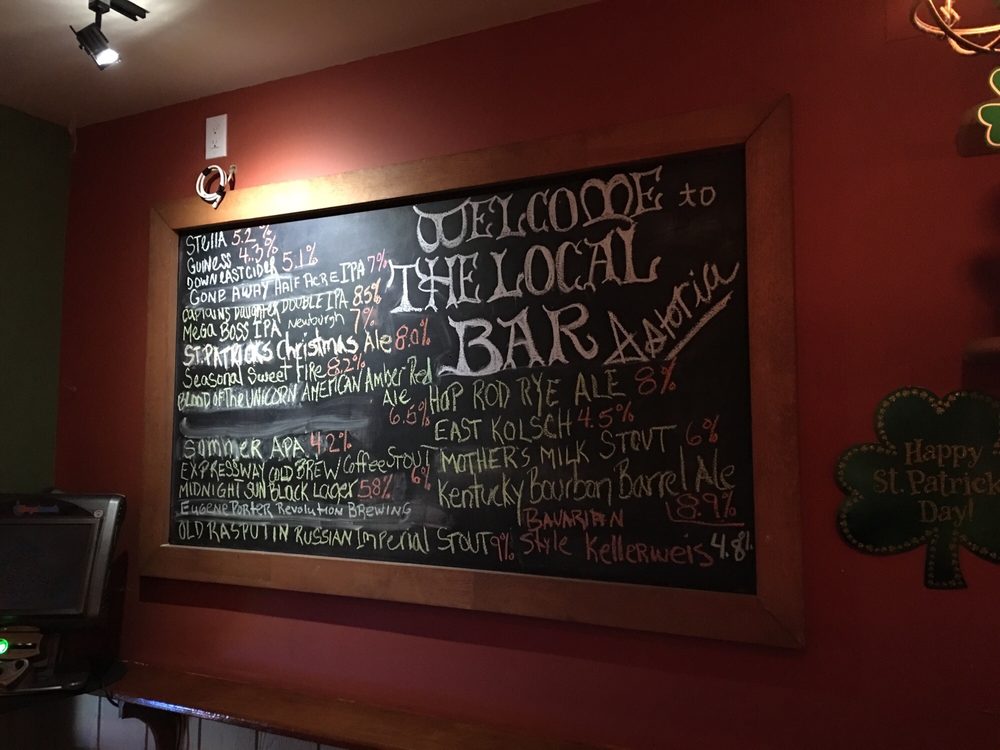 Stella 5.2%
Guiness 4.3%
DOWNEAST CIDER 5.1%
GONE AWAY HALF ACRE IPA 7%
Captains Daughter DOUBLE IPA 8.5%
MEGA BOSS IPA Newburgh 7%
ST. PATRICKS Christmas Ale 8.0%
Seasonal Sweet Fire 8.2%
BLOOD OF THE UNICORN AMERICAN Amber Red
Ale
6.5%
SUMMER APA 4.2%
EXPRESSWAY COLD BREW Coffee STOUT 6%
MIDNIGHT SUN Black Lager 5.8%
EUGENE PORTER REVOLUTION BREWING
OLD RASPUTIN RUSSIAN Imperial STOUT 9%
WELCOME to
THE LOCAL
BAR Astoria
HOP ROD RYE ALE 8%
EAST KOLSCH 4.5%
MOTHER'S MILK STOUT 6%
Kentucky Bourbon Barrel Ale
8.9%
BAVARIAN
Style Kellerweis 4.8%
Happy
St. Patrick
Day!